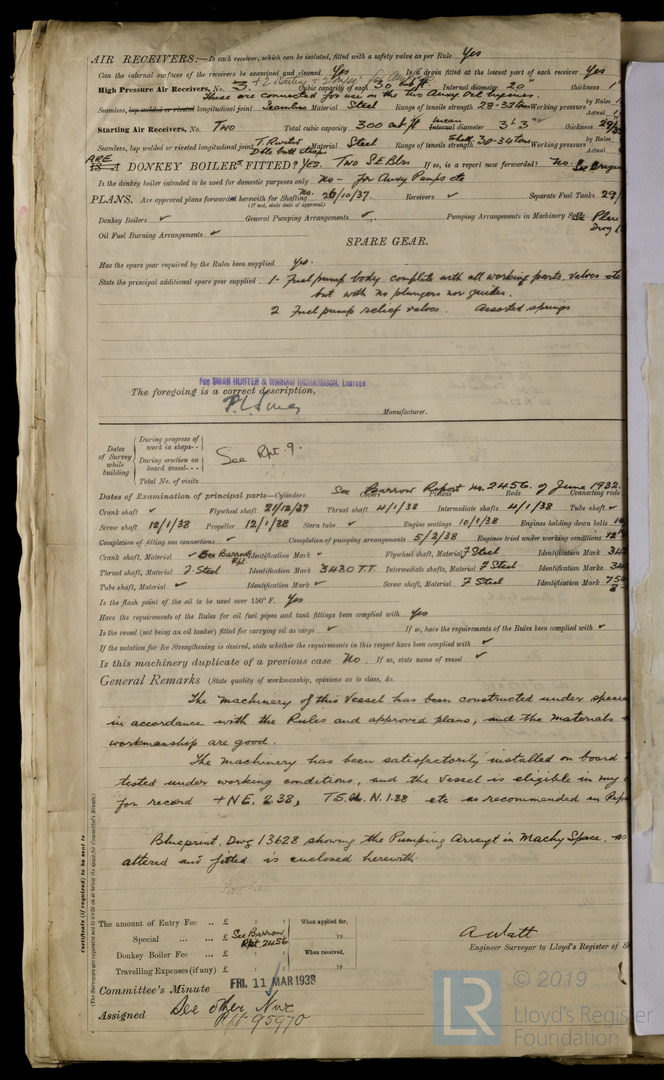 AIR RECEIVERS:—Is each receiver, which can be isolated, fitted with a safety valve as per Rule Yes
Can the internal surfaces of the receivers be examined and cleaned Yes Is a drain fitted at the lowest part of each receiver Yes
High Pressure Air Receivers, No. 3. Cubic capacity of each 30 cub ft Internal diameter 20" thickness 1"
These are connected for use in the two Auxy Oil Engines.
Seamless, lap welded or riveted longitudinal joint Seamless Material Steel Range of tensile strength 28-32 tons Working pressure by Rules
Actual
Starting Air Receivers, No. Two Total cubic capacity 300 cub ft mean Internal diameter 3' 3" thickness 29/32
Seamless, lap welded or riveted longitudinal joint T. Riveted Dble butt straps Material Steel Range of tensile strength Shell 30-34 tons Working pressure by Rules
Actual
ARE
IS A DONKEY BOILERS FITTED? Yes. Two S.E. Blrs If so, is a report now forwarded? No.
Is the donkey boiler intended to be used for domestic purposes only No – for Auxy Pumps etc
PLANS. Are approved plans forwarded herewith for Shafting No. 26/10/37. Receivers ✓ Separate Fuel Tanks 29/
(If not, state date of approval)
Donkey Boilers ✓ General Pumping Arrangements ✓ Pumping Arrangements in Machinery Space See Plan
Dwg 1
Oil Fuel Burning Arrangements ✓
SPARE GEAR.
Has the spare gear required by the Rules been supplied Yes.
State the principal additional spare gear supplied 1 – Fuel pump body complete with all working parts, valves etc
but with no plungers nor guides.
2 Fuel pump relief valves. Assorted springs
FOR SWAN HUNTER & WIGHAM RICHARDSON, LIMITED
The foregoing is a correct description,
Manufacturer.
Dates of Survey while building
During progress of work in shops - -
During erection on board vessel - - -
Total No. of visits
See Rpt. 9.
See Barrow Report No. 2456 of June 1932.
Dates of Examination of principal parts—Cylinders Covers Pistons Rods Connecting rods
Crank shaft ✓ Flywheel shaft 21/12/37 Thrust shaft 4/1/38 Intermediate shafts 4/1/38 Tube shaft ✓
Screw shaft 12/1/38 Propeller 12/1/38 Stern tube ✓ Engine seatings 10/1/38 Engines holding down bolts 10
Completion of fitting sea connections ✓ Completion of pumping arrangements 5/2/38 Engines tried under working conditions 12
Crank shaft, Material ✓ See Barrow Rpt. Identification Mark ✓ Flywheel shaft, Material F Steel Identification Mark 34
Thrust shaft, Material F. Steel Identification Mark 3430 T.T. Intermediate shafts, Material F Steel Identification Marks 34
Tube shaft, Material ✓ Identification Mark ✓ Screw shaft, Material F Steel Identification Mark 75
Is the flash point of the oil to be used over 150° F. Yes
Have the requirements of the Rules for oil fuel pipes and tank fittings been complied with Yes
Is the vessel (not being an oil tanker) fitted for carrying oil as cargo ✓ If so, have the requirements of the Rules been complied with ✓
If the notation for Ice Strengthening is desired, state whether the requirements in this respect have been complied with ✓
Is this machinery duplicate of a previous case No. If so, state name of vessel ✓
General Remarks (State quality of workmanship, opinions as to class, &c.
The machinery of this Vessel has been constructed under special
in accordance with the Rules and approved plans, and the materials
workmanship are good.
The machinery has been satisfactorily installed on board
tested under working conditions, and the vessel is eligible in my
for record + N.E. 2.38, T.S. N. 1.38 etc as recommended in
Blueprint, Dwg 13628 showing the Pumping Arrangt in Machy Space, as
altered and fitted is enclosed herewith
Certificate (if required) to be sent to
(The Surveyors are requested not to write on or below the space for Committee's Minute.)
The amount of Entry Fee .. £ : : When applied for,
Special ... ... £ See Barrow Rpt. 2456 19
Donkey Boiler Fee ... £ : : When received,
Travelling Expenses (if any) £ : : 19
A Watt
Engineer Surveyor to Lloyd's Register of S
Committee's Minute FRI. 11 MAR 1938
Assigned See other Nwc
Rpt 95970
© 2019
LR Lloyd's Register
Foundation